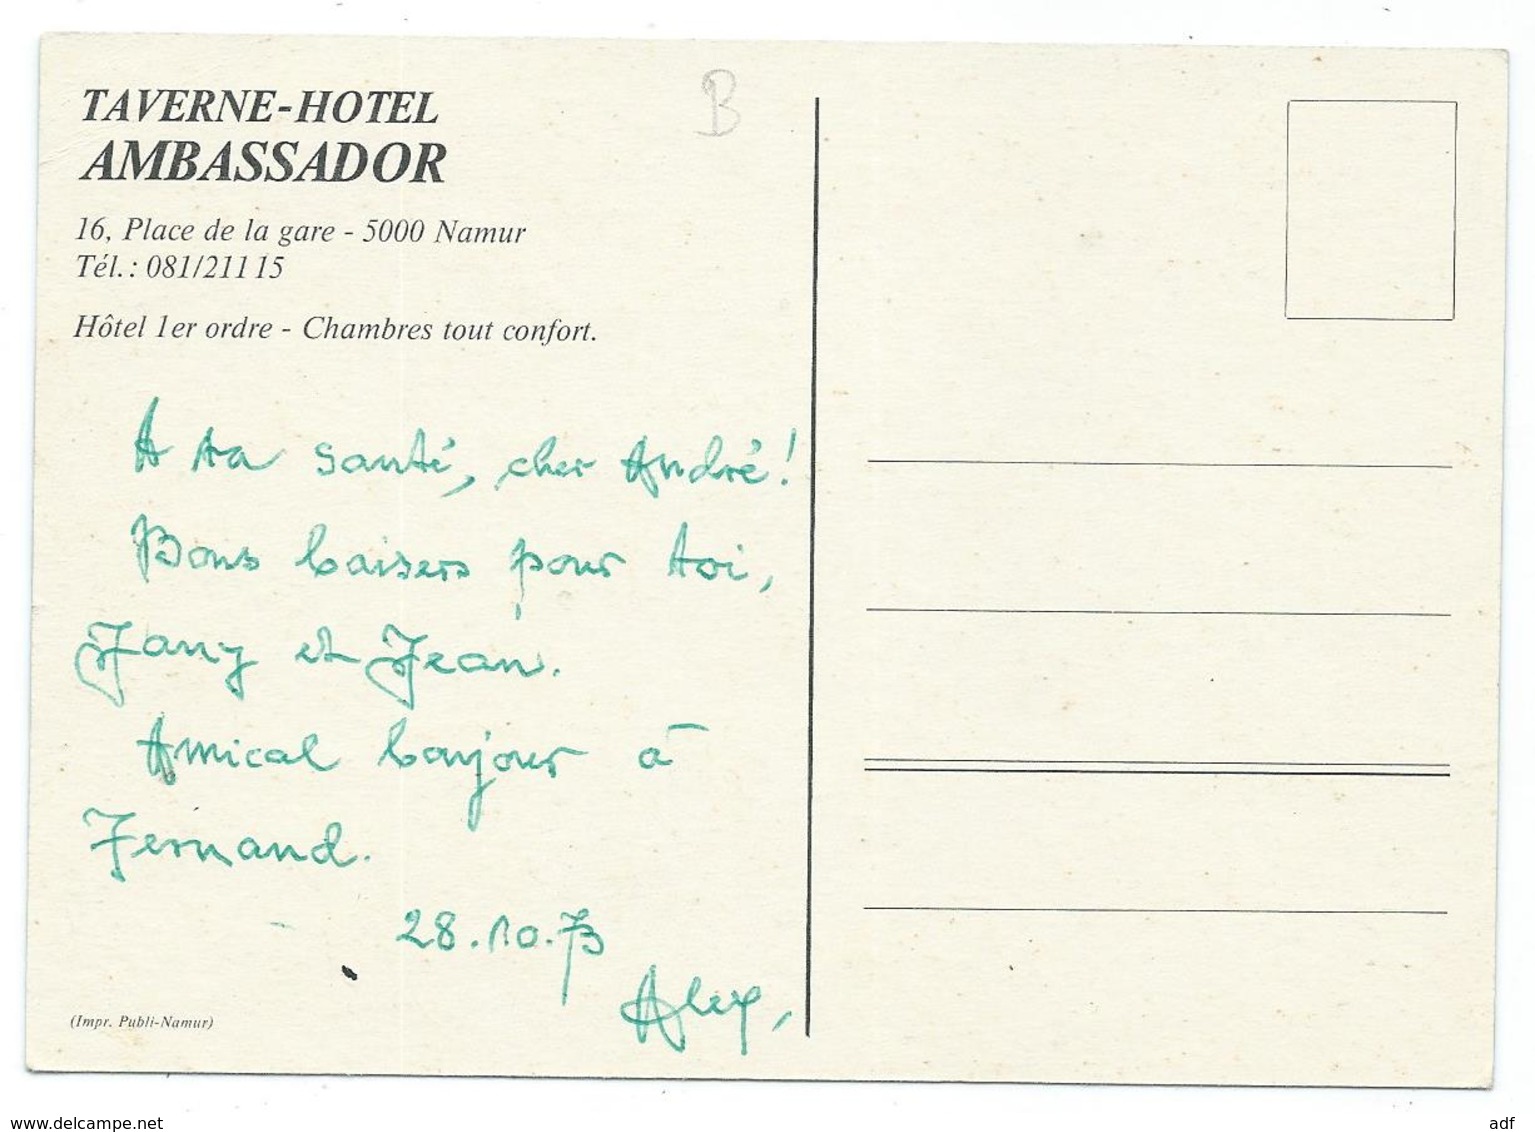 TAVERNE-HOTEL
AMBASSADOR
16, Place de la gare - 5000 Namur
Tél.: 081/211 15
Hôtel 1er ordre - Chambres tout confort.
B
A ta santé, cher André!
Bons baisers pour toi,
Jany et Jean.
Amical bonjour à
Fernand.
28.10.73
Alex,
(Impr. Publi-Namur)
www.delcampe.net
adf